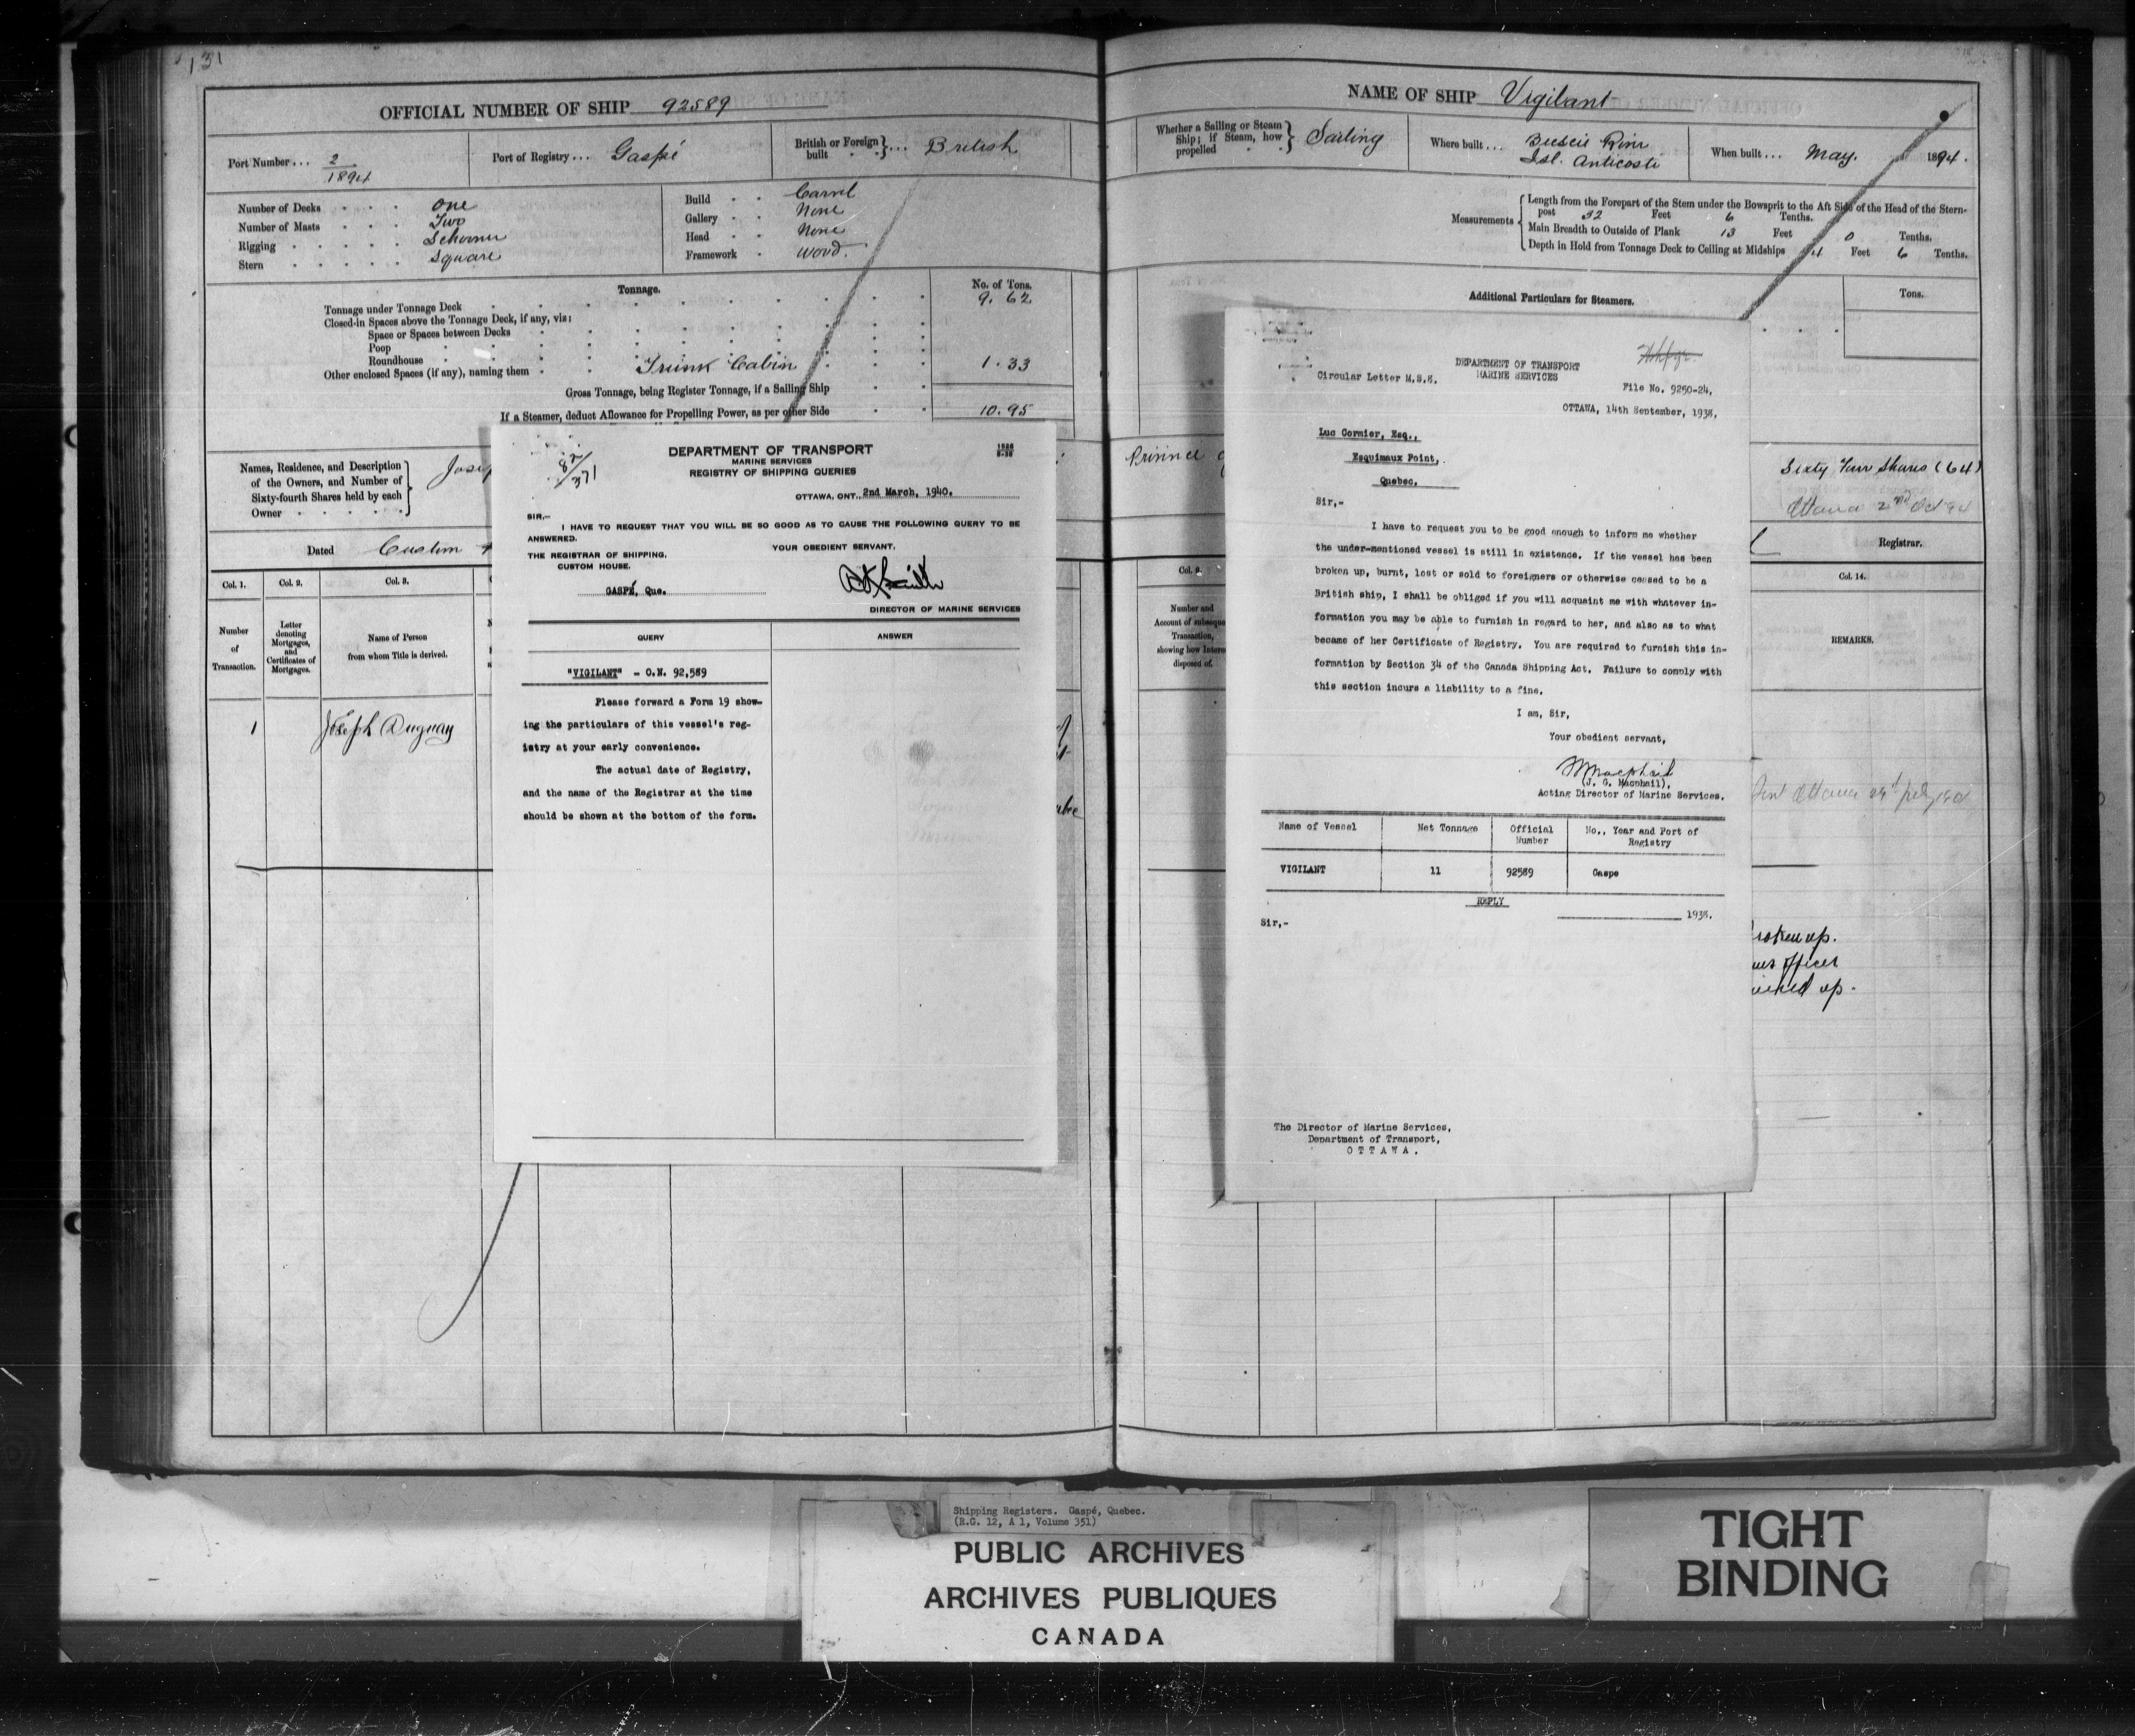 131
OFFICIAL NUMBER OF SHIP 92589
Port Number... 2/1894
Port of Registry... Gaspé
British or Foreign built ... British
Number of Decks One
Number of Masts Two
Rigging Schooner
Stern Square
Build Carvel
Gallery None
Head None
Framework Wood.
Tonnage.
No. of Tons.
Tonnage under Tonnage Deck 9.62
Closed-in Spaces above the Tonnage Deck, if any, viz:
Space or Spaces between Decks
Poop
Roundhouse
Other enclosed Spaces (if any), naming them Trunk Cabin 1.33
Gross Tonnage, being Register Tonnage, if a Sailing Ship
If a Steamer, deduct Allowance for Propelling Power, as per other Side 10.95
Names, Residence, and Description
of the Owners, and Number of
Sixty-fourth Shares held by each
Owner
Dated Custom
Col. 1. Col. 2. Col. 3.
Number of Transaction.
Letter denoting Mortgages, and Certificates of Mortgages.
Name of Person from whom Title is derived.
1 Joseph Duguay
82/371
DEPARTMENT OF TRANSPORT
MARINE SERVICES
REGISTRY OF SHIPPING QUERIES
OTTAWA, ONT. 2nd March, 1940.
SIR,—
I HAVE TO REQUEST THAT YOU WILL BE SO GOOD AS TO CAUSE THE FOLLOWING QUERY TO BE
ANSWERED.
YOUR OBEDIENT SERVANT,
THE REGISTRAR OF SHIPPING,
CUSTOM HOUSE.
GASPÉ, Que.
DIRECTOR OF MARINE SERVICES
QUERY
ANSWER
"VIGILANT" - O.N. 92,589
Please forward a Form 19 show-
ing the particulars of this vessel's reg-
istry at your early convenience.
The actual date of Registry,
and the name of the Registrar at the time
should be shown at the bottom of the form.
NAME OF SHIP Vigilant
Whether a Sailing or Steam
Ship; if Steam, how
propelled
Sailing
Where built...
Isl. Anticosti
When built... May. 1894.
Measurements
Length from the Forepart of the Stem under the Bowsprit to the Aft Side of the Head of the Stern-
post 32 Feet 6 Tenths.
Main Breadth to Outside of Plank 13 Feet 0 Tenths.
Depth in Hold from Tonnage Deck to Ceiling at Midships 4 Feet 6 Tenths.
Additional Particulars for Steamers.
Tons.
Sixty Four Shares (64)
Ottawa 2nd Oct 94
Registrar.
Col. 14.
Number and
Account of subseque
Transaction,
showing how Intere
disposed of.
REMARKS.
DEPARTMENT OF TRANSPORT
MARINE SERVICES
Circular Letter M.S.8.
File No. 9250-24,
OTTAWA, 14th September, 1938,
Luc Cormier, Esq.,
Esquimaux Point,
Quebec,
Sir,-
I have to request you to be good enough to inform me whether
the under-mentioned vessel is still in existence. If the vessel has been
broken up, burnt, lost or sold to foreigners or otherwise ceased to be a
British ship, I shall be obliged if you will acquaint me with whatever in-
formation you may be able to furnish in regard to her, and also as to what
became of her Certificate of Registry. You are required to furnish this in-
formation by Section 34 of the Canada Shipping Act. Failure to comply with
this section incurs a liability to a fine.
I am, Sir,
Your obedient servant,
(J. G. Macphail),
Acting Director of Marine Services.
Name of Vessel Net Tonnage Official Number No., Year and Port of Registry
VIGILANT 11 92589 Gaspe
REPLY
1938.
Sir,-
The Director of Marine Services,
Department of Transport,
OTTAWA.
roken up.
officer
up.
Shipping Registers. Gaspé, Quebec.
(R.G. 12, A 1, Volume 351)
PUBLIC ARCHIVES
ARCHIVES PUBLIQUES
CANADA
TIGHT
BINDING